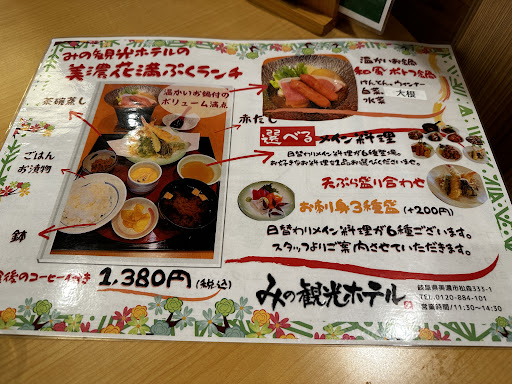 みの観光ホテルの
美濃花満ぷくランチ
温かいお鍋付の
ボリューム満点
茶碗蒸し
赤だし
ごはん
お漬物
鉢
温かいお鍋
和風ポトフ鍋
けんちん、ウィンナー
白菜 大根
水菜
選べる メイン料理
日替わりメイン料理が6種登場。
お好きなお料理を1品お選びくださいませ。
天ぷら盛り合わせ
お刺身3種盛 (+200円)
日替わりメイン料理が6種ございます。
スタッフよりご案内させていただきます。
食後のコーヒー付き 1,380円 (税込)
みの観光ホテル
岐阜県美濃市松森333-1
TEL.0120-884-101
営業時間/11:30~14:30